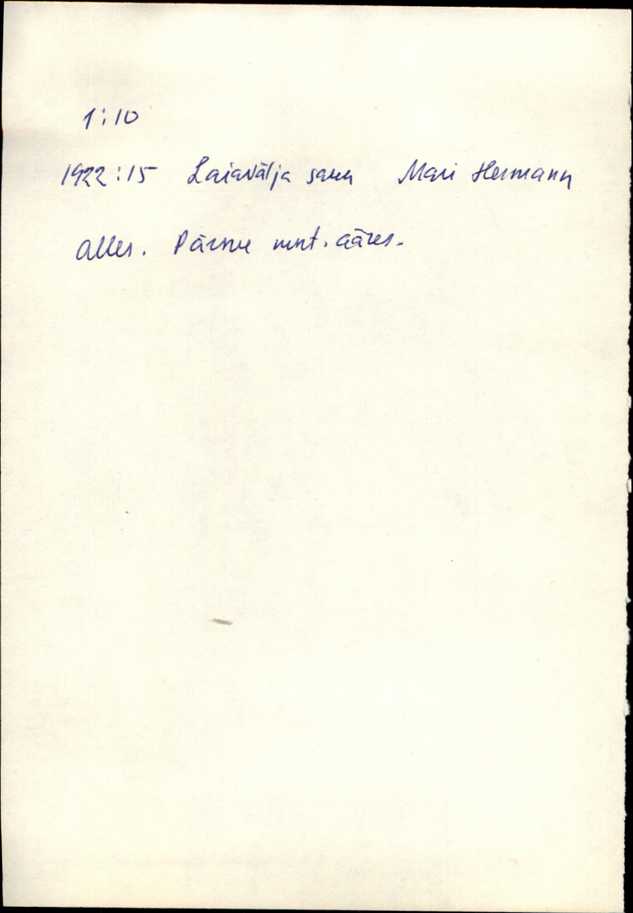 1:10
1922:15 Laiavälja saun Mari Hermann
alles. Pärnu mnt. ääres.